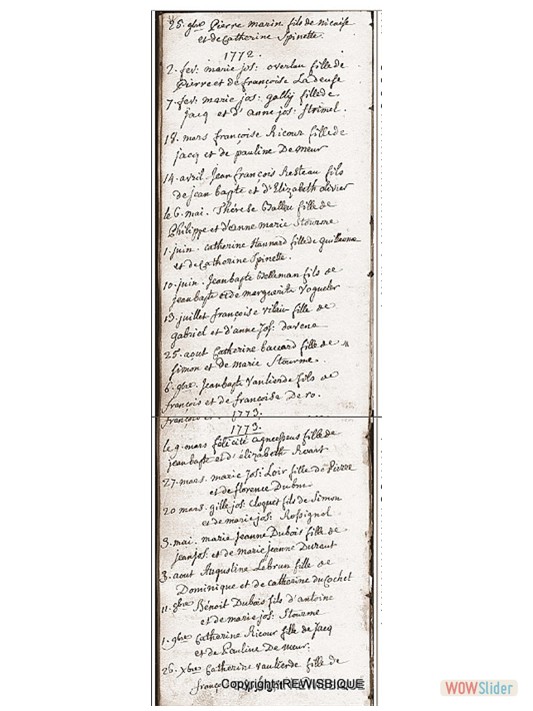 25. 9bre Pierre marin fils de nicaise
et de Catherine Spinette.
1772.
2. fev: marie jos: overlau fille de
Pierre et de françoise Ladeuse
7. fev: marie jos: gally fille de
jacq et d'anne jos: Strimel.
18. mars françoise Ricour fille de
jacq et de pauline De meur
14. avril Jean françois Resteau fils
de jean bapte et d'Elizabeth olivier
le 6. mai. Thérèse Wallez fille de
Philippe et d'anne marie Stourme
1. juin. Catherine Stunnard fille de guillaume
et de Catherine Spinette.
10. juin. Jean bapte Welleman fils de
jean bapte et de marguerite Vogueler
13. juillet françoise vilain fille de
gabriel et d'anne jos: davena
25. aout Catherine baccard fille de
Simon et de marie Stourme.
6. 9bre. Jean bapte Vanliende fils de
françois et de françoise De ro.
françois et
1773.
1773.
le 9. mars félicité agneessens fille de
jean bapte et d'élizabeth Rvart
27. mars. marie Jos: Loir fille de Pierre
et de florence Dubus
20 mars. gille jos: Cloquet fils de Simon
et de marie jos: Rossignol
3. mai. marie jeanne Dubois fille de
jean jos. et de marie jeanne Durent
3. aout Augustine Lebrun fille de
Dominique et de catherine du Cochet
11. 8bre Benoit Dubois fils d'antoine
et de marie jos: Stourme
1. 9bre Catherine Ricour fille de Jacq
et de Pauline De meur:
26. Xbre Catherine vanlierde fille de
françois
Copyright REWISBIQUE
WOWSlider